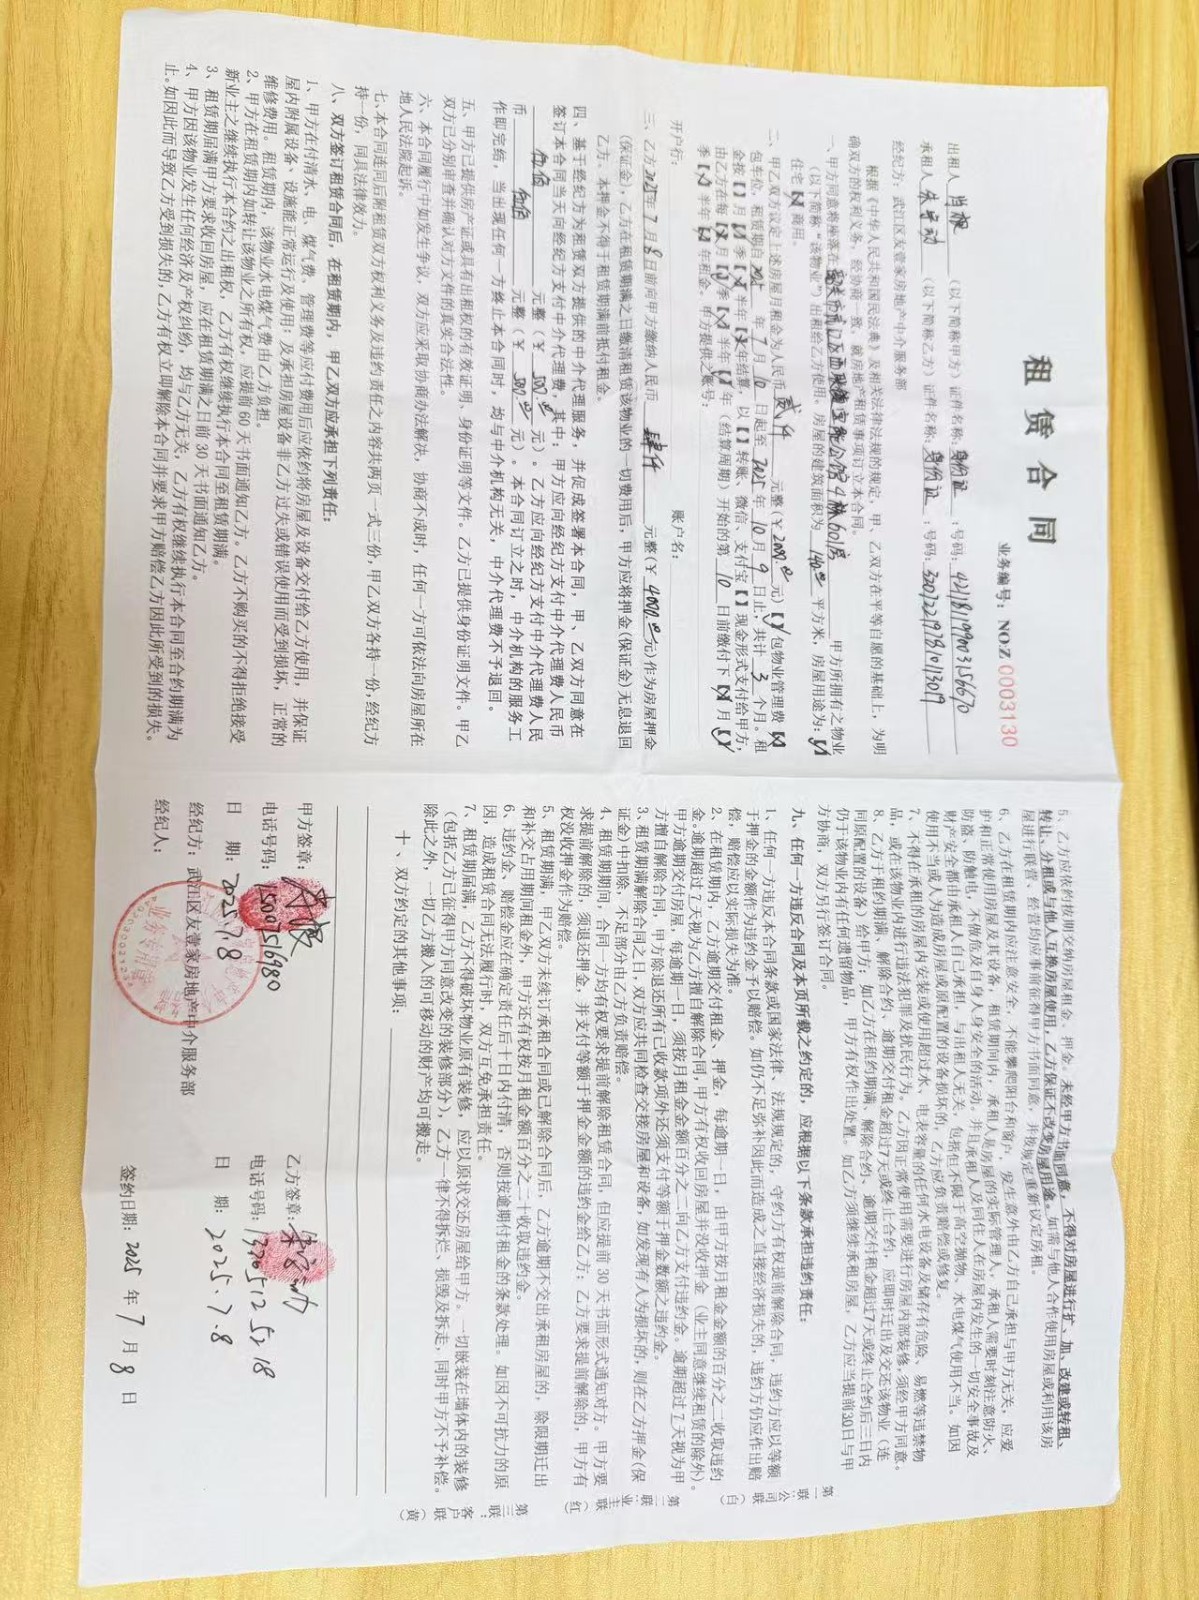 租赁合同
业务编号：NO.Z 0003130
出租人 肖根 （以下简称甲方）证件名称：身份证；号码：
承租人 （以下简称乙方）证件名称：身份证；号码：
经纪方：武江区友壹家房地产中介服务部
根据《中华人民共和国民法典》及相关法律法规的规定，甲、乙双方在平等自愿的基础上，为明
确双方的权利义务，经协商一致，就房地产租赁事项订立本合同。
一、甲方同意将座落在 4栋601房 甲方所拥有之物业
（以下简称“该物业”）出租给乙方使用。房屋的建筑面积为 140.00 平方米，房屋用途为：
住宅 商用。
二、甲乙双方议定上述房屋月租金为人民币 贰仟 元整（￥2000.00元） 包物业管理费
包车位，租赁期自 2025 年 7 月 10 日起至 2025 年 10 月 9 日止，共计 3 个月。租
金按【】月 季 半年 年结算，以【】转账、微信、支付宝【】现金形式支付给甲方，
由乙方在每 月 季 半年 年（结算周期）开始的第 10 日前缴付下 月
季 半年 年租金。甲方提供之账号：
开户行： 账户名：
三、乙方 2025 年 7 月 8 日前向甲方缴纳人民币 肆仟 元整（￥4000.00元）作为房屋押金
（保证金），乙方在租赁期满之日缴清租赁该物业的一切费用后，甲方应将押金（保证金）无息退回
乙方。本押金不得于租赁期满前抵付租金。
四、基于经纪方为租赁双方提供的中介代理服务，并促成签署本合同，甲、乙双方同意在
签订本合同当天向经纪方支付中介代理费，其中：甲方应向经纪方支付中介代理费人民币
伍佰 元整（￥500.00 元）。乙方应向经纪方支付中介代理费人民
币 伍佰 元整（￥500.00 元）。本合同订立之时，中介机构的服务工
作即完结，当出现任何一方终止本合同时，均与中介机构无关，中介代理费不予退回。
五、甲方已提供房产证或具有出租权的有效证明、身份证明等文件。乙方已提供身份证明文件。甲乙
双方已分别审查并确认对方文件的真实合法性。
六、本合同履行中如发生争议，双方应采取协商办法解决，协商不成时，任何一方可依法向房屋所在
地人民法院起诉。
七、本合同连同后附租赁双方权利义务及违约责任之内容共两页一式三份，甲乙双方各持一份，经纪方
持一份，同具法律效力。
八、双方签订租赁合同后，在租赁期内，甲乙双方应承担下列责任：
1、甲方在付清水、电、煤气费、管理费等应付费用后应依约将房屋及设备交付给乙方使用，并保证
屋内附属设备、设施能正常运行及使用；及承担房屋设备非乙方过失或错误使用而受到损坏，正常的
维修费用。租赁期内，该物业水电煤气费由乙方负担。
2、甲方在租赁期内如转让该物业之所有权，应提前60天书面通知乙方。乙方不购买的不得拒绝接受
新业主之继续执行本合约之出租权，乙方有权继续执行本合同至租赁期满。
3、租赁期届满甲方要求收回房屋，应在租赁期满之日前30天书面通知乙方。
4、甲方因该物业发生任何经济及产权纠纷，均与乙方无关，乙方有权继续执行本合同至合约期满为
止。如因此而导致乙方受到损失的，乙方有权立即解除本合同并要求甲方赔偿乙方因此所受到的损失。
5、乙方应依约按期交纳房屋租金、押金。未经甲方书面同意，不得对房屋进行扩、加、改建或转租、
转让、分租或与他人互换房屋使用，乙方保证不改变房屋用途。如需与他人合作使用房屋或利用该房
屋进行联营、经营均应事前征得甲方书面同意，并按规定重新议定房租。
6、乙方在租赁期内应注意安全，不能攀爬阳台和窗户，发生意外由乙方自己承担与甲方无关，应爱
护和正常使用房屋及其设备，租赁期间内，承租人是房屋的实际管理人，承租人需要时刻注意防火、
防盗、防触电，不做危及自身人身安全的活动。并且承租人及同住人在房屋内发生的一切安全事故及
财产安全都由承租人自己承担，与出租人无关，包括但不限于高空抛物、水电煤气使用不当。如因
使用不当或人为造成房屋或原配置的设备损坏的，乙方应负责赔偿或修复。
7、不得在承租的房屋内安装或使用超过水、电表容量的任何水电设备及储存有危险、易燃等违禁物
品，或在该物业内进行违法犯罪及扰民行为。乙方因正常使用需要进行房屋内部装修，须经甲方同意。
8、乙方于租约期满、解除合约、逾期交付租金超过7天或终止合约，应即时迁出及交还该物业（连
同原配置的设备）给甲方；如乙方在租约期满、解除合约、逾期交付租金超过7天或终止合约后三日内
仍于该物业内有任何遗留物品，甲方有权作出处置。如乙方须继续承租房屋，乙方应当提前30日与甲
方协商，双方另行签订合同。
九、任何一方违反合同及本页所载之约定的，应根据以下条款承担违约责任：
1、任何一方违反本合同条款或国家法律、法规规定的，守约方有权提前解除合同，违约方应以等额
于押金的金额作为违约金予以赔偿。如仍不足弥补因此而造成之直接经济损失的，违约方仍应作出赔
偿，赔偿应以实际损失为准。
2、在租赁期内，乙方逾期交付租金、押金，每逾期一日，由甲方按月租金金额的百分之二收取违约
金。逾期超过7天视为乙方擅自解除合同，甲方有权收回房屋并没收押金（业主同意继续租赁的除外）。
甲方逾期交付房屋，每逾期一日，须按月租金金额百分之二向乙方支付违约金。逾期超过7天视为甲
方擅自解除合同，甲方除退还所有已收款项外还须支付等额于押金数额之违约金。
3、租赁期满解除合同之日，双方应共同检查交接房屋和设备，如发现有人为损坏的，则在乙方押金（保
证金）中扣除，不足部分由乙方负责赔偿。
4、租赁期期间，合同一方均有权要求提前解除租赁合同，但应提前30天书面形式通知对方。甲方要
求提前解除的，须退还押金，并支付等额于押金金额的违约金给乙方；乙方要求提前解除的，甲方有
权没收押金作为赔偿。
5、租赁期满，甲乙双方未续订承租合同或已解除合同后，乙方逾期不交出承租房屋的，除限期迁出
和补交占用期间租金外，甲方还有权按月租金额百分之二十收取违约金。
6、违约金、赔偿金应在确定责任后十日内付清，否则按逾期付租金的条款处理。如因不可抗力的原
因，造成租赁合同无法履行时，双方互免承担责任。
7、租赁期届满，乙方不得破坏物业原有装修，应以原状交还房屋给甲方。一切嵌装在墙体内的装修
（包括乙方已征得甲方同意改变的装修部分），乙方一律不得拆烂、损毁及拆走，同时甲方不予补偿。
除此之外，一切乙方搬入的可移动的财产均可搬走。
十、双方约定的其他事项：
甲方签章： 乙方签章：
电话号码：15007516980 电话号码：13205125218
日 期：2025.7.8 日 期：2025.7.8
经纪方：武江区友壹家房地产中介服务部
经纪人： 签约日期：2025 年 7 月 8 日
第一联：公司联（白）
第二联：业主联（红）
第三联：客户联（黄）